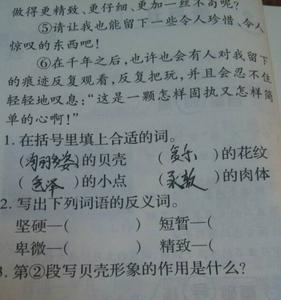 做得更精致、更仔细、更加一丝不苟呢?
⑤请让我也能留下一些令人珍惜、令人
惊叹的东西吧!
⑥在千年之后,也许也会有人对我留下
的痕迹反复观看,反复把玩,并且会忍不住
轻轻地叹息:“这是一颗怎样固执又怎样简
单的心啊!”
1. 在括号里填上合适的词。
( )的贝壳 ( )的花纹
(色泽 )的小点 (柔软 )的肉体
2. 写出下列词语的反义词。
坚硬—( ) 短暂—( )
卑微—( ) 精致—( )
3. 第②段写贝壳形象的作用是什么?